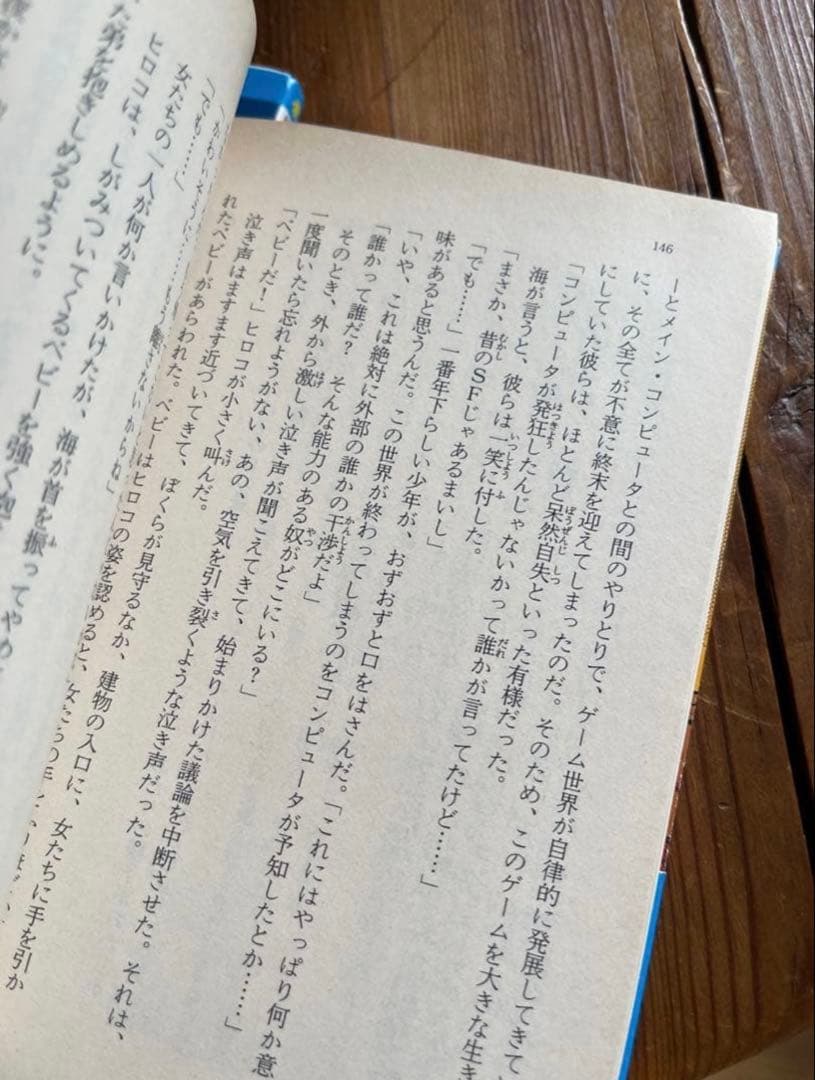 146
ーとメイン・コンピュータとの間のやりとりで、ゲーム世界が自律的に発展してきて
に、その全てが不意に終末を迎えてしまったのだ。そのため、このゲームを大きな生き
にしていた彼らは、ほとんど呆然自失といった有様だった。
「コンピュータが発狂したんじゃないかって誰かが言ってたけど……」
海が言うと、彼らは一笑に付した。
「まさか、昔のSFじゃあるまいし」
「でも……」一番年下らしい少年が、おずおずと口をはさんだ。「これにはやっぱり何か意
味があると思うんだ。この世界が終わってしまうのをコンピュータが予知したとか……」
「いや、これは絶対に外部の誰かの干渉だよ」
「誰かって誰だ？　そんな能力のある奴がどこにいる？」
そのとき、外から激しい泣き声が聞こえてきて、始まりかけた議論を中断させた。それは、
一度聞いたら忘れようがない、あの、空気を引き裂くような泣き声だった。
「ベビーだ！」ヒロコが小さく叫んだ。
泣き声はますます近づいてきて、ぼくらが見守るなか、建物の入口に、女たちに手を引か
れたベビーがあらわれた。ベビーはヒロコの姿を認めると、女たちの手
ないからね」
「でも……」
女たちの一人が何か言いかけたが、海が首を振ってやめ
ヒロコは、しがみついてくるベビーを強く
た弟を抱きしめるように。